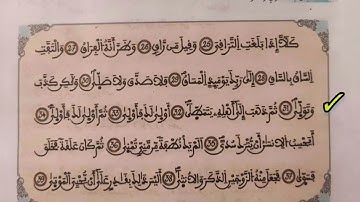 كَلَّا إِذَا بَلَغَتِ التَّرَاقِيَ 25 وَقِيلَ مَن رَّاقٍ 26 وَظَنَّ أَنَّهُ الْفِرَاقُ 27 وَالْتَفَّتِ
السَّاقُ بِالسَّاقِ 28 إِلَىٰ رَبِّكَ يَوْمَئِذٍ الْمَسَاقُ 29 فَلَا صَدَّقَ وَلَا صَلَّىٰ 30 وَلَٰكِن كَذَّبَ
وَتَوَلَّىٰ 31 ثُمَّ ذَهَبَ إِلَىٰ أَهْلِهِ يَتَمَطَّىٰ 32 أَوْلَىٰ لَكَ فَأَوْلَىٰ 33 ثُمَّ أَوْلَىٰ لَكَ فَأَوْلَىٰ 34
أَيَحْسِبُ الْإِنسَانُ أَن يُتْرَكَ سُدًى 35 أَلَمْ يَكُ نُطْفَةً مِّن مَّنِيٍّ تُمْنَىٰ 36 ثُمَّ كَانَ عَلَقَةً فَخَلَقَ
فَسَوَّىٰ 37 فَجَعَلَ مِنْهُ الزَّوْجَيْنِ الذَّكَرَ وَالْأُنثَىٰ 38 أَلَيْسَ ذَٰلِكَ بِقَٰدِرٍ عَلَىٰ أَن يُحْيِيَ الْمَوْتَىٰ 39